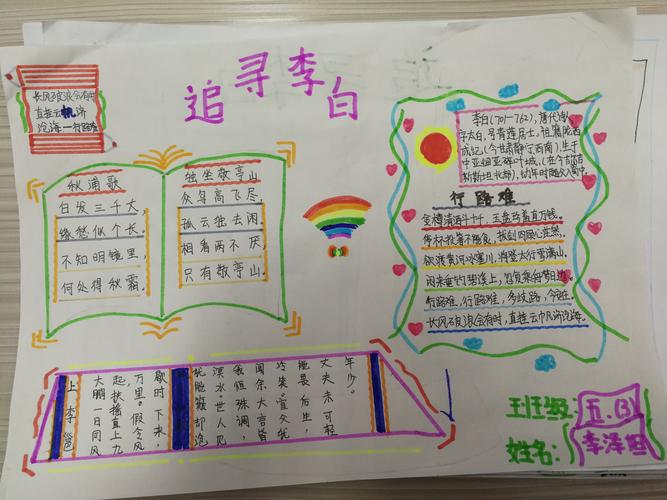 追寻李白
长风破浪会有时
直挂云帆济
沧海—行路难
秋浦歌
白发三千丈
缘愁似个长。
不知明镜里,
何处得秋霜。
独坐敬亭山
众鸟高飞尽
孤云独去闲
相看两不厌
只有敬亭山。
李白(701-762),唐代诗
字太白,号青莲居士,祖籍陇西
成纪(今甘肃静宁西南),生于
中亚
行路难
金樽清酒斗十千,玉盘珍羞直万钱。
停杯投箸不能食,拔剑四顾心茫然。
欲渡黄河冰塞川,将登太行雪满山。
闲来垂钓碧溪上,忽复乘舟梦日边。
行路难,行路难,多歧路,今安在。
长风破浪会有时,直挂云帆济沧海。
上李邕
大鹏一日同风
起,扶摇直上九
万里。假令风
歇时下来,
犹能簸却沧
溟水。世人见
我恒殊调,
闻余大言皆
冷笑。宣父犹
能畏后生,
丈夫未可轻
年少。
班级:五.(3)
姓名:李泽